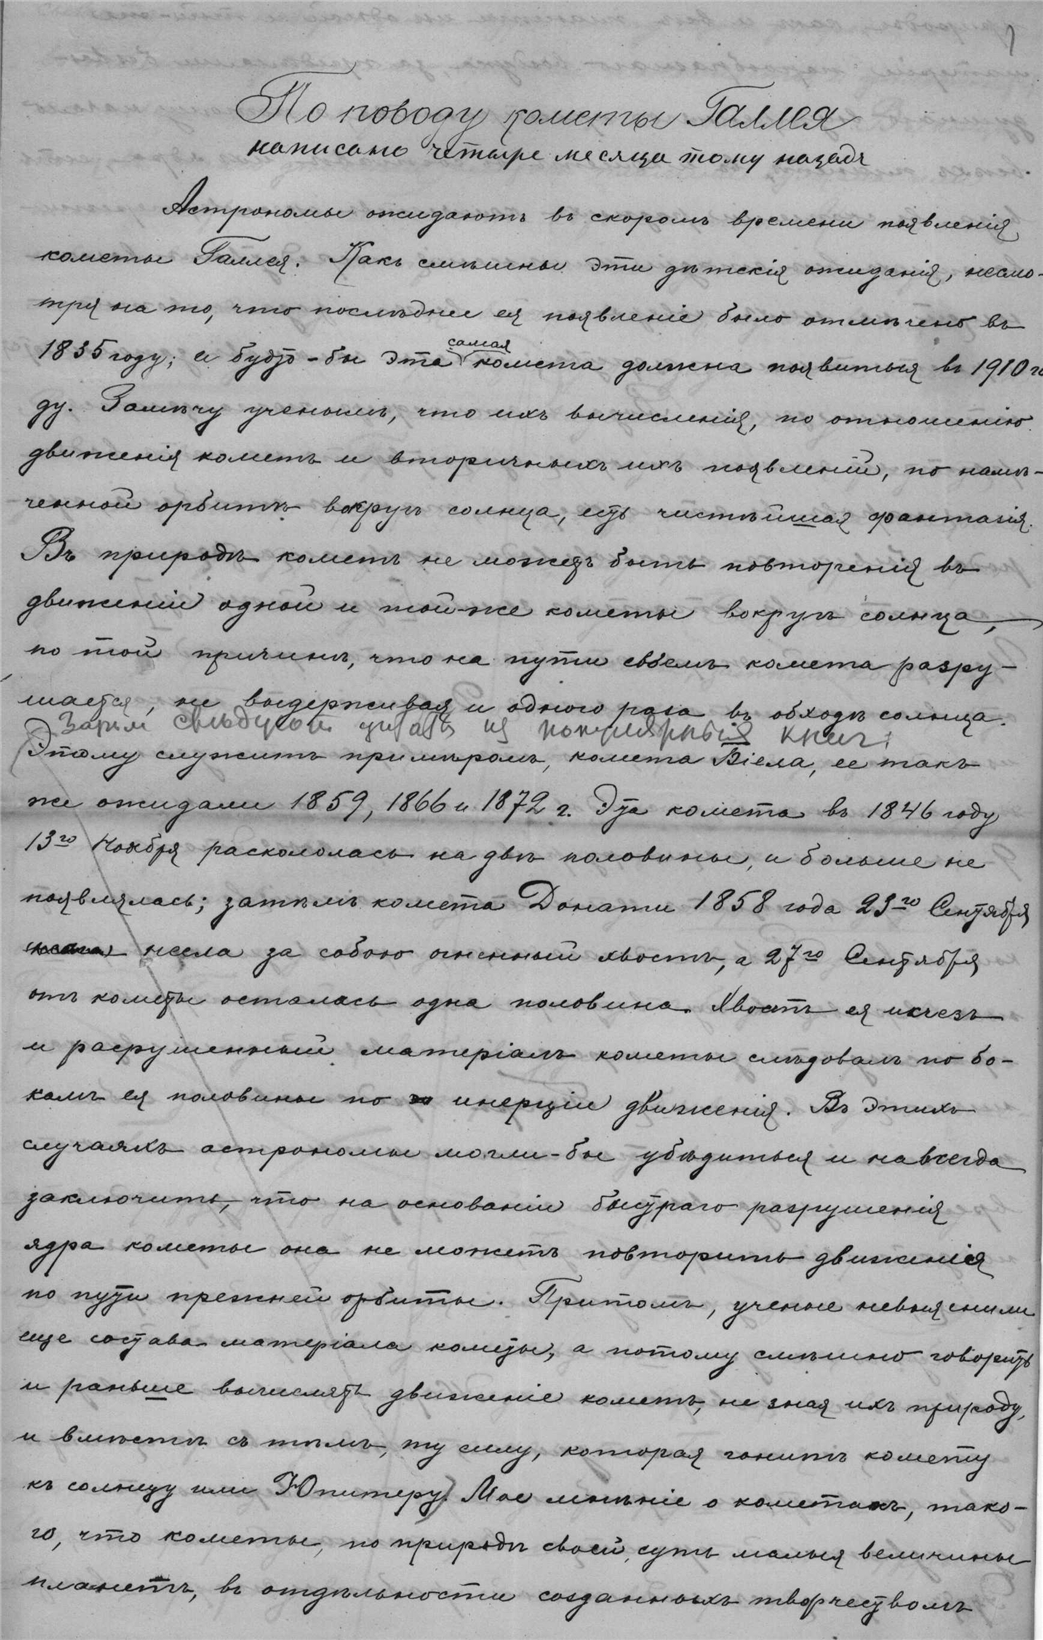 По поводу кометы Галлея
написано четыре месяца тому назадъ
Астрономы ожидаютъ въ скоромъ времени появленія
кометы Галлея. Какъ смѣшны эти дѣтскія ожиданія, несмо-
тря на то, что послѣднее ея появленіе было отмѣчено въ
1835 году; и будто-бы эта самая комета должна появиться въ 1910 го
ду. Замѣчу ученымъ, что ихъ вычисленія, по отношенію
движенія кометъ и вторичныхъ ихъ появленій, по намѣ-
ченной орбитѣ вокругъ солнца, есть чистѣйшая фантазія.
Въ природѣ кометъ не можетъ быть повторенія въ
движеніи одной и той-же кометы вокругъ солнца,
по той причинѣ, что на пути своемъ комета разру-
шается, не выдерживая и одного раза въ обходѣ солнца.
Затѣм слѣдуетъ читать из популярныхъ книг:
Этому служитъ примѣромъ, комета Віела, ее так-
же ожидали 1859, 1866 и 1872 г. Эта комета въ 1846 году
13го Ноября раскололась на двѣ половины, и больше не
появлялась; затѣмъ комета Донати 1858 года 23го Сентября
несла за собою огненный хвостъ, а 27го Сентября
отъ кометы осталась одна половина. Хвостъ ея исчезъ
и разрушенный матеріалъ кометы слѣдовалъ по бо-
камъ ея половины по инерціи движенія. Въ этихъ
случаяхъ астрономы могли-бы убѣдиться и навсегда
заключить, что на основаніи быстраго разрушенія
ядра кометы она не можетъ повторить движенія
по пути прежней орбиты. Притомъ, ученые невыяснили
еще состава матеріала кометы, а потому смѣшно говорить
и раньше вычислять движеніе кометъ, не зная ихъ природу,
и вмѣстѣ съ тѣмъ, ту силу, которая гонитъ комету
къ солнцу или Юпитеру) Мое мнѣніе о кометахъ, тако-
го, что кометы, по природѣ своей, суть малыя величины
планетъ, въ отдѣльности созданныхъ творчествомъ